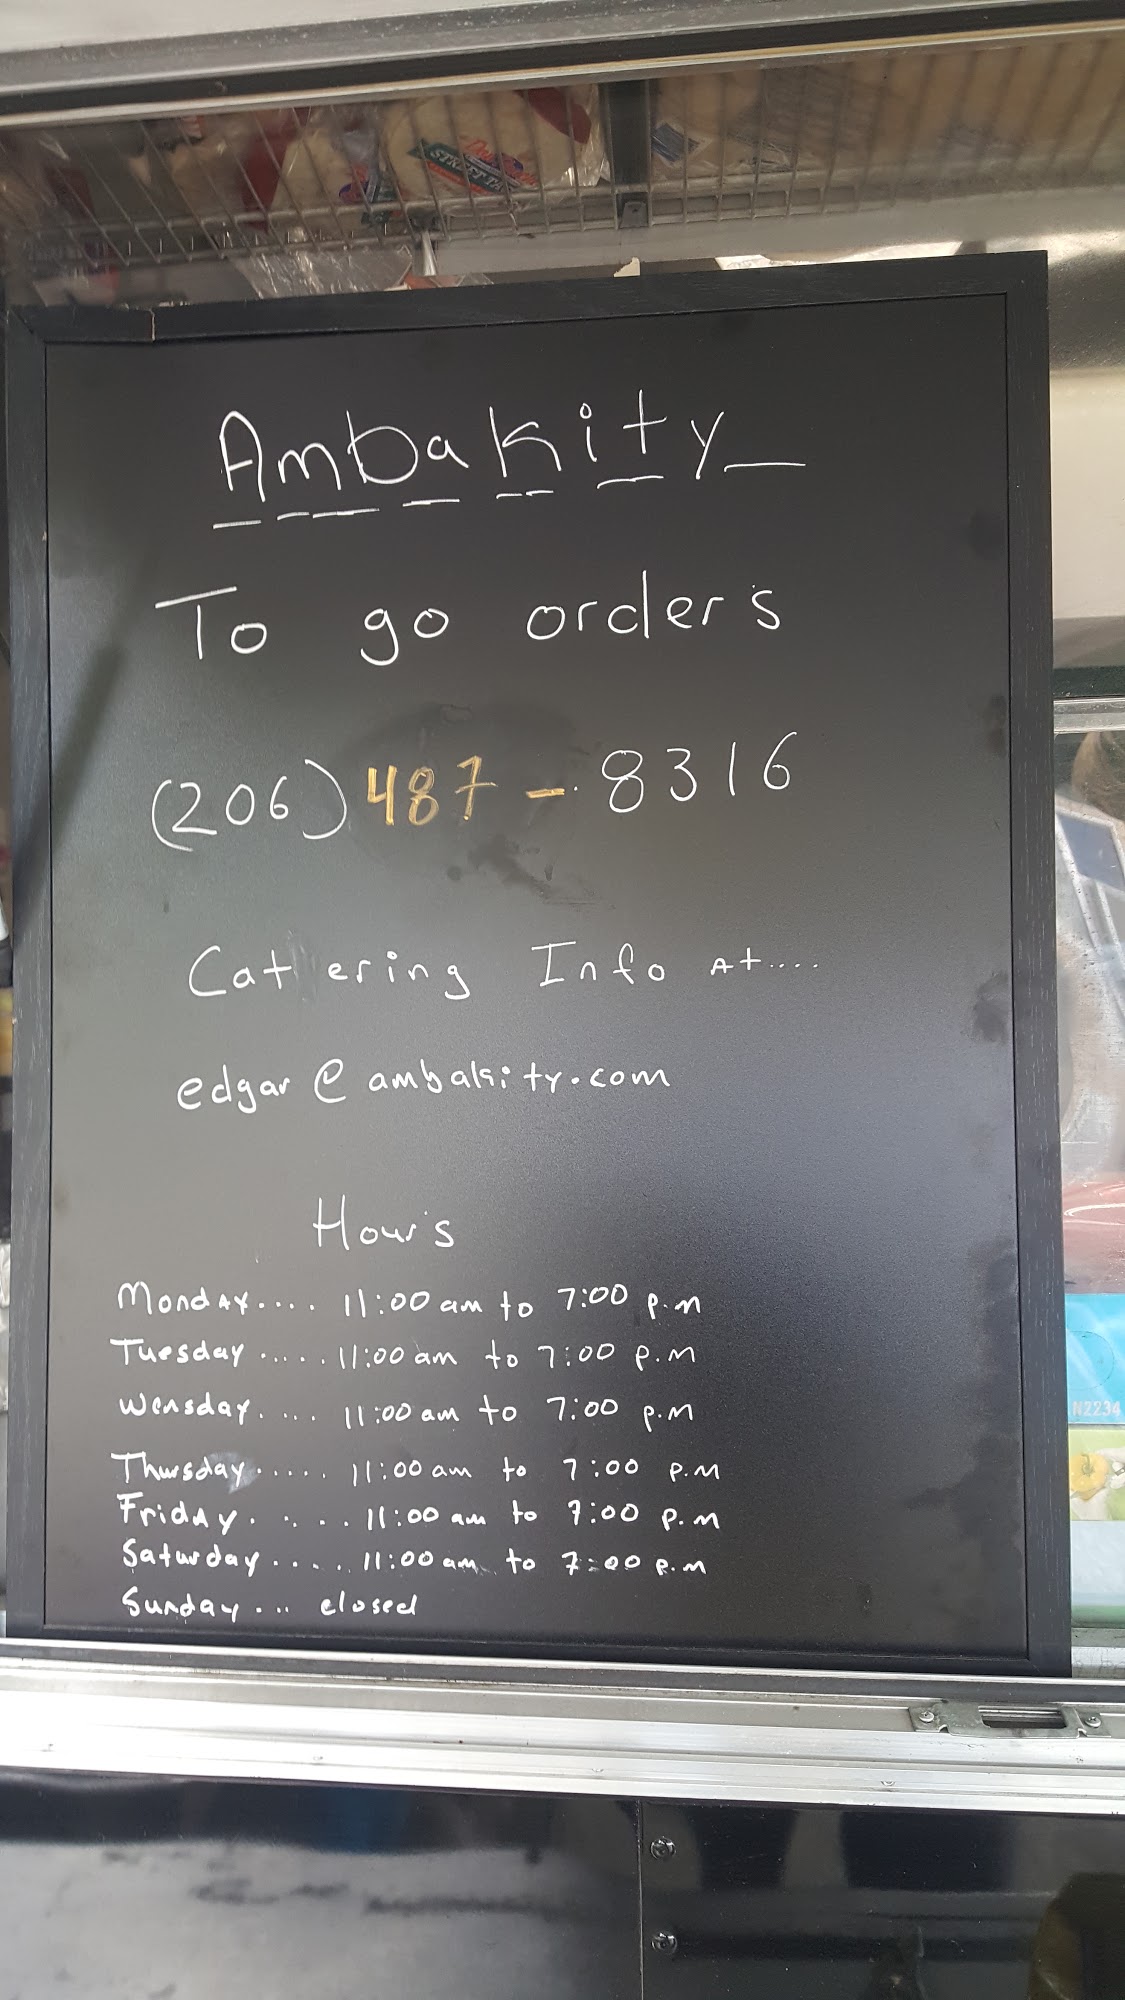 STREET TA
Ambakity
To go orders
(206) 487-8316
Catering Info At....
edgar@ambakity.com
Hours
Monday.... 11:00 am to 7:00 p.m
Tuesday ..... 11:00 am to 7:00 p.m
Wensday.... 11:00 am to 7:00 p.m
Thursday..... 11:00 am to 7:00 p.m
Friday..... 11:00 am to 7:00 p.m
Saturday..... 11:00 am to 7:00 p.m
Sunday... closed
N2234